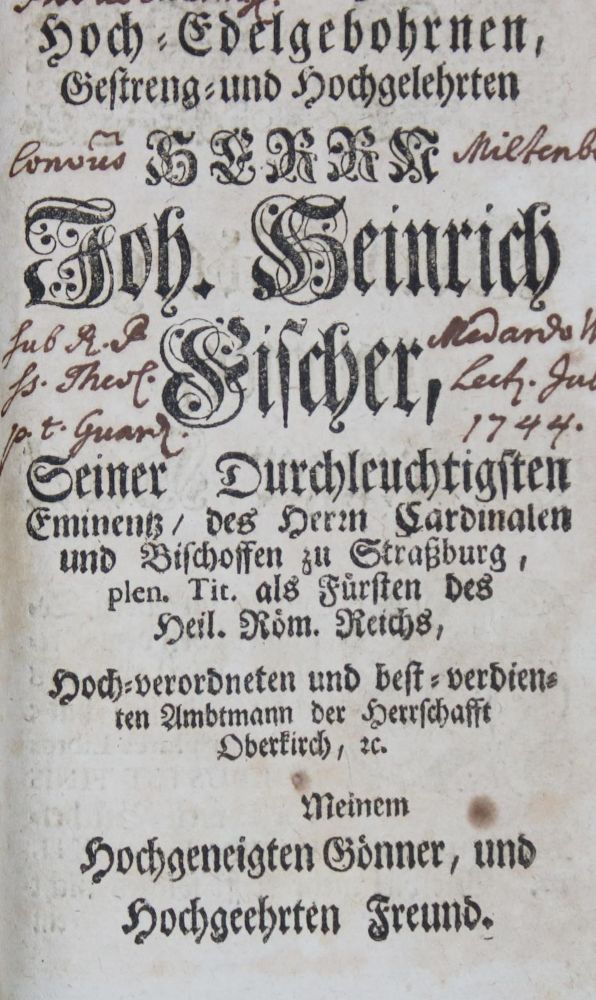 Hoch-Edelgebohrnen,
Gestreng-und Hochgelehrten
HERRN
Miltenb
Joh. Heinrich
sub R. P.
Medardo W
Fischer,
ss. Theol.
Lect. Jub
p. t. Guard.
1744.
Seiner Durchleuchtigsten
Eminentz / des Herrn Cardinalen
und Bischoffen zu Straßburg,
plen. Tit. als Fürsten des
Heil. Röm. Reichs,
Hoch-verordneten und best-verdien-
ten Ambtmann der Herrschafft
Oberkirch, ꝛc.
Meinem
Hochgeneigten Gönner, und
Hochgeehrten Freund.